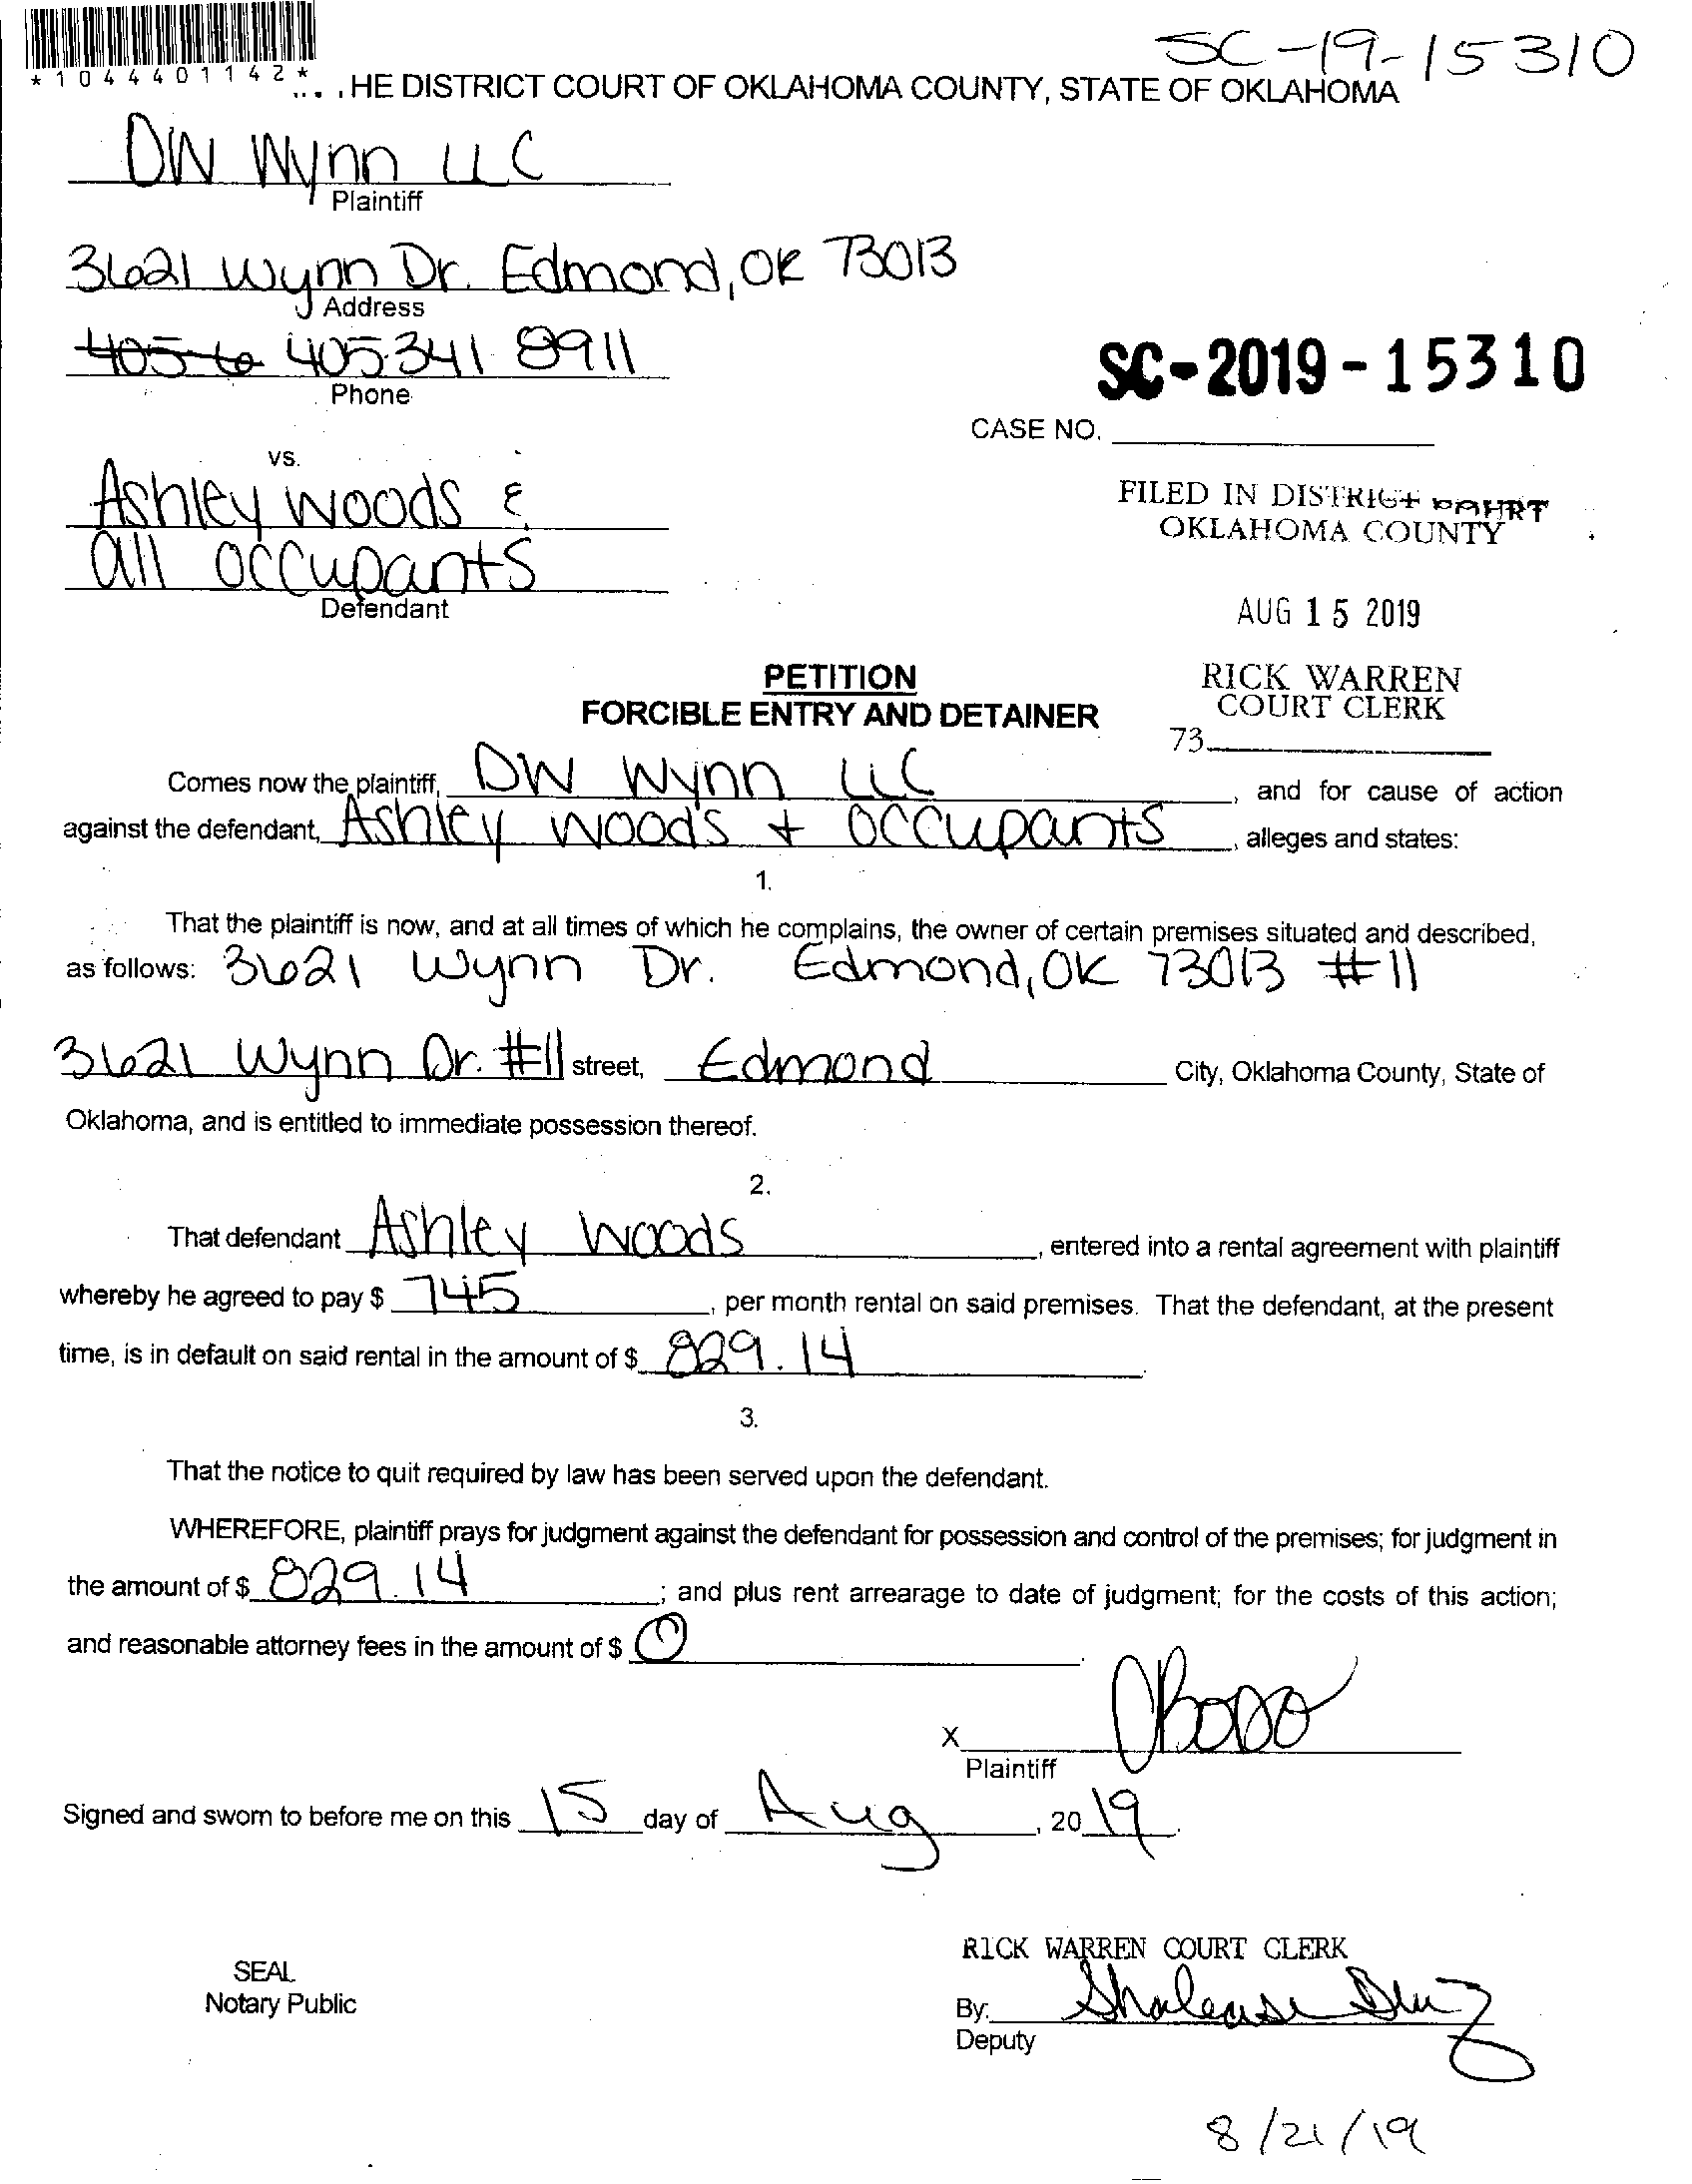 SC-19-15310
*1044401142*
HE DISTRICT COURT OF OKLAHOMA COUNTY, STATE OF OKLAHOMA
DW Wynn LLC
Plaintiff
3621 Wynn Dr. Edmond, OK 73013
Address
405 to 405 341 8911
Phone
SC-2019-15310
CASE NO.
vs.
Ashley Woods &
all occupants
Defendant
FILED IN DISTRICT COURT
OKLAHOMA COUNTY
AUG 15 2019
RICK WARREN
COURT CLERK
73
PETITION
FORCIBLE ENTRY AND DETAINER
Comes now the plaintiff, DW Wynn LLC, and for cause of action
against the defendant, Ashley Woods + occupants, alleges and states:
1.
That the plaintiff is now, and at all times of which he complains, the owner of certain premises situated and described,
as follows: 3621 Wynn Dr. Edmond, OK 73013 #11
3621 Wynn Dr. #11 street, Edmond City, Oklahoma County, State of
Oklahoma, and is entitled to immediate possession thereof.
2.
That defendant Ashley Woods, entered into a rental agreement with plaintiff
whereby he agreed to pay $ 745, per month rental on said premises. That the defendant, at the present
time, is in default on said rental in the amount of $ 829.14.
3.
That the notice to quit required by law has been served upon the defendant.
WHEREFORE, plaintiff prays for judgment against the defendant for possession and control of the premises; for judgment in
the amount of $ 829.14; and plus rent arrearage to date of judgment; for the costs of this action;
and reasonable attorney fees in the amount of $ 0.
X
Plaintiff
Signed and sworn to before me on this 15 day of Aug, 20 19.
SEAL
Notary Public
RICK WARREN COURT CLERK
By:
Deputy
8/21/19